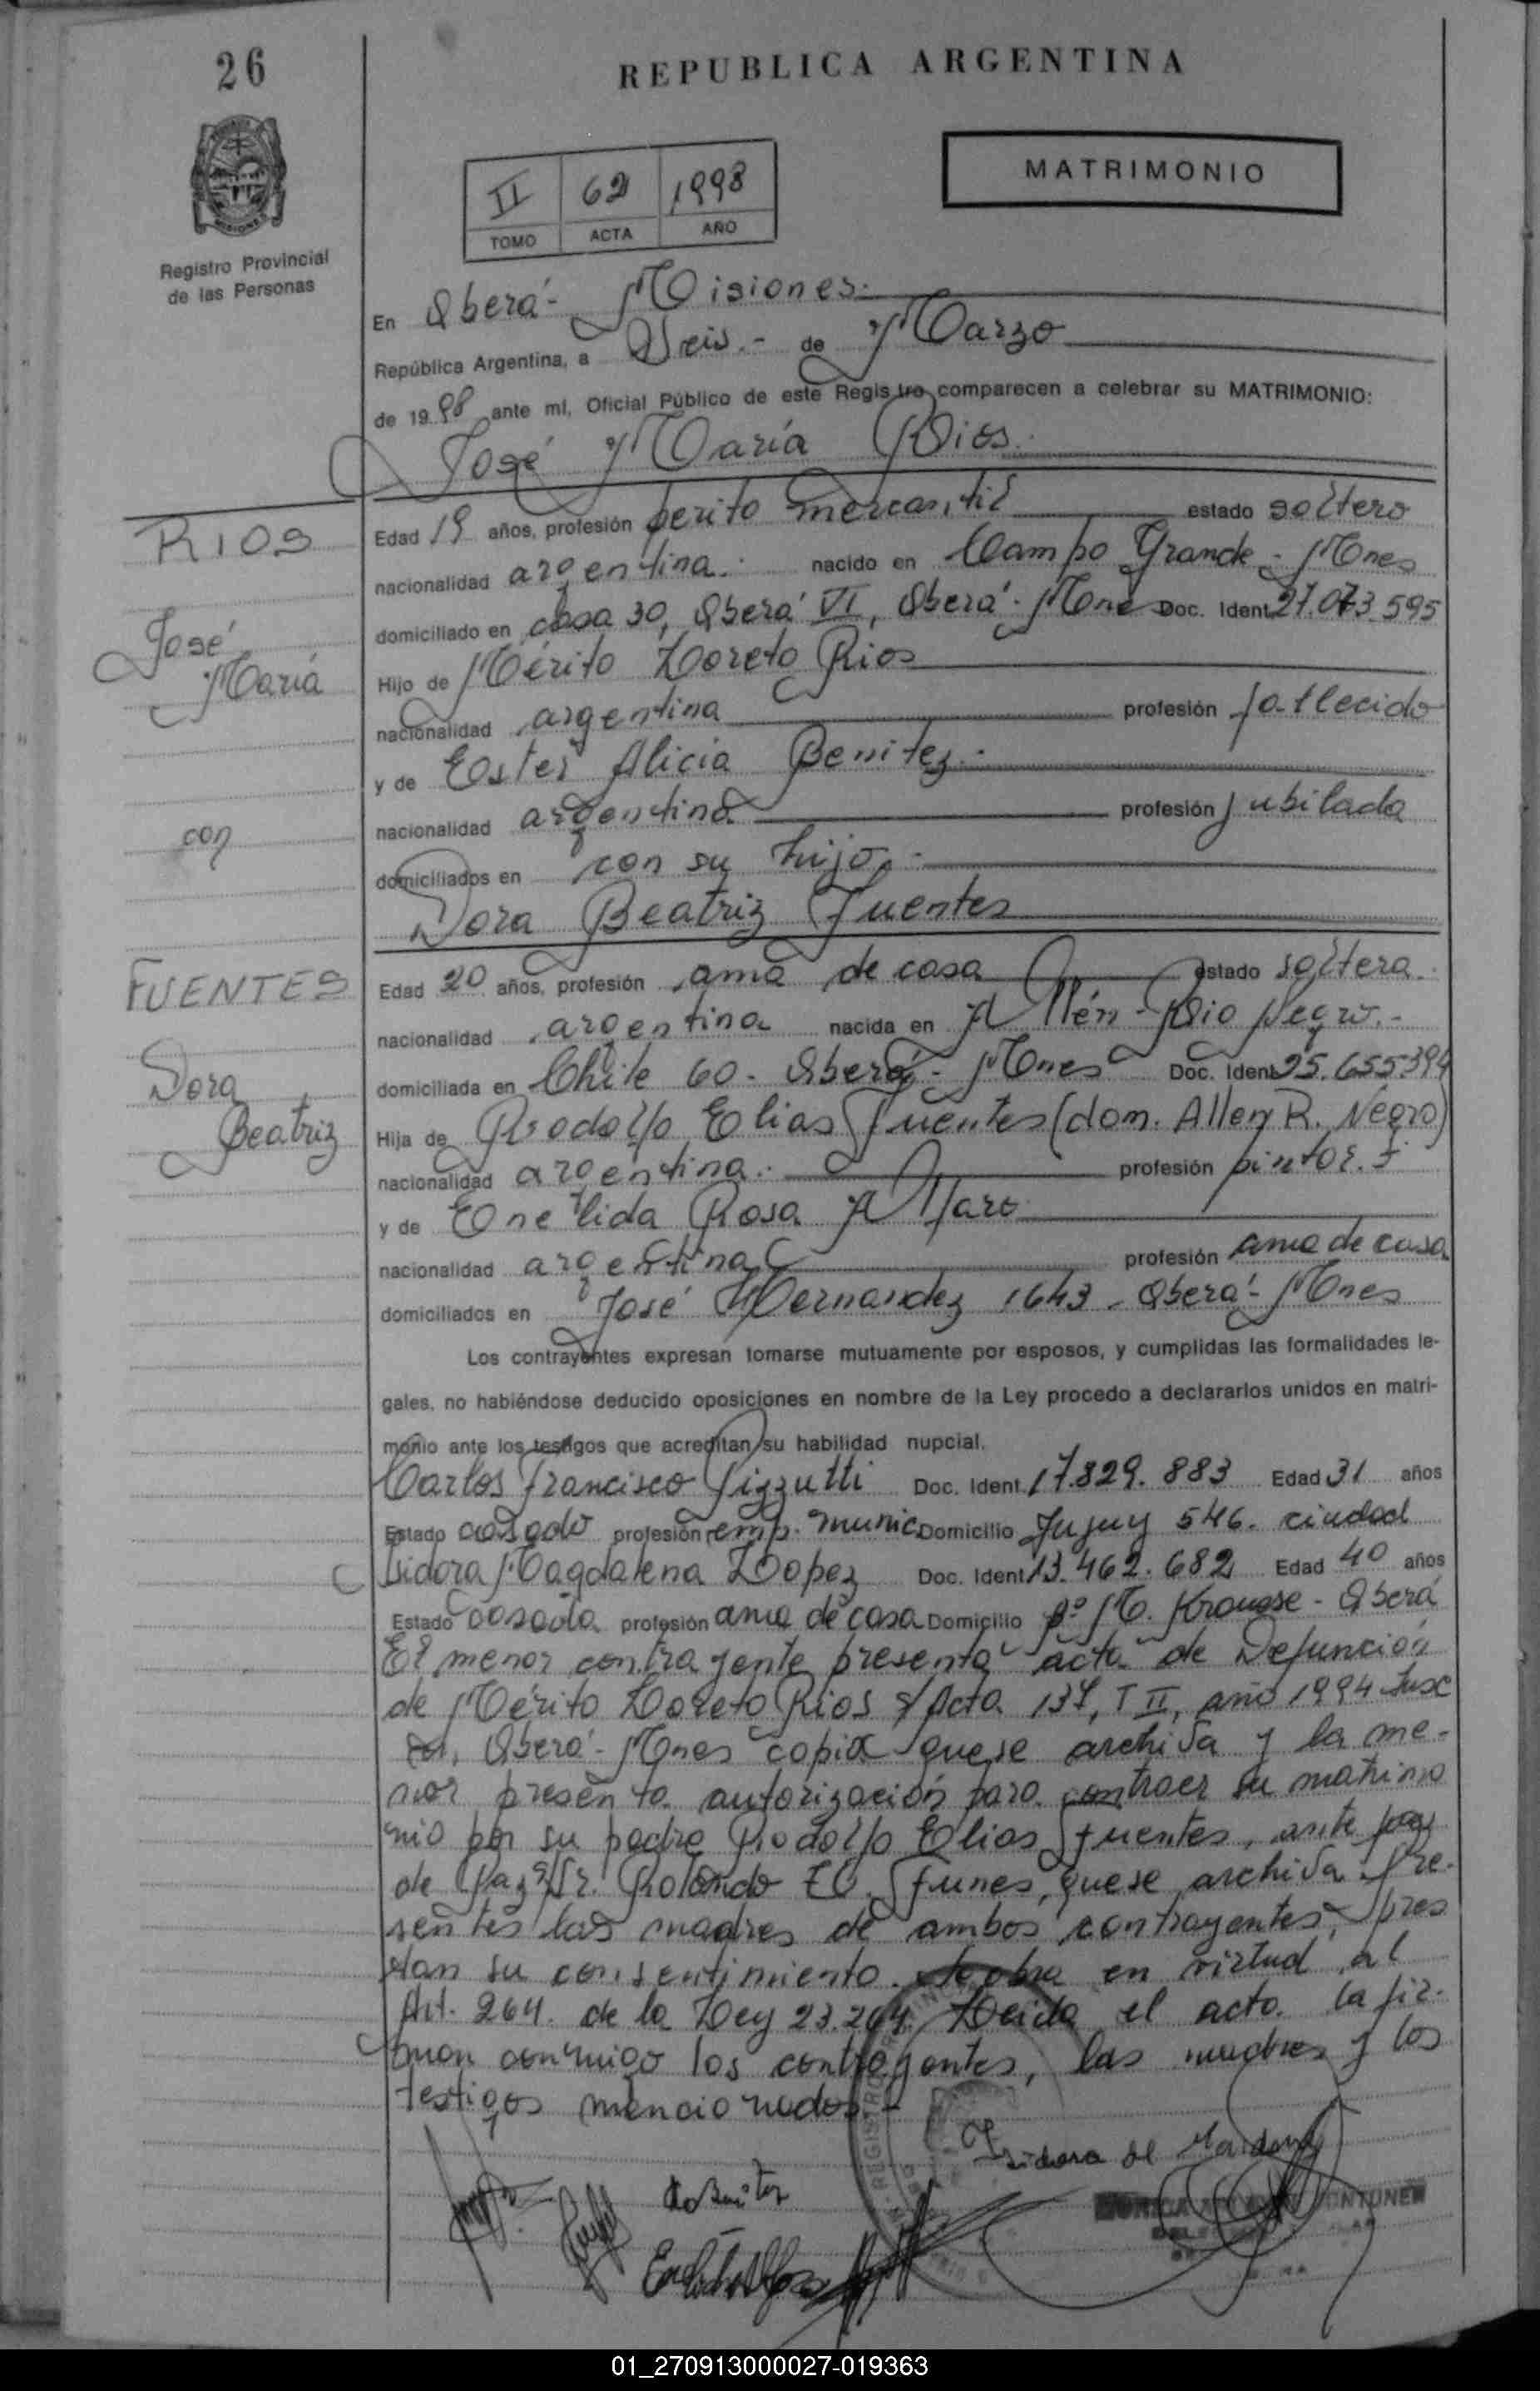 26
REPUBLICA ARGENTINA
MATRIMONIO
II 62 1998
TOMO ACTA AÑO
Registro Provincial
de las Personas
En Oberá - Misiones.
República Argentina, a Seis.- de Marzo
de 1998 ante mí, Oficial Público de este Registro comparecen a celebrar su MATRIMONIO:
José María Rios.
RIOS
José
María
con
FUENTES
Dora
Beatriz
Edad 19 años, profesión perito mercantil estado soltero
nacionalidad argentina. nacido en Campo Grande - Mnes
domiciliado en casa 30, Oberá VI, Oberá - Mnes Doc. Ident 27.073.595
Hijo de Mérito Loreto Rios
nacionalidad argentina profesión fallecido
y de Ester Alicia Benitez.
nacionalidad argentina profesión jubilada
domiciliados en con su hijo.
Dora Beatriz Fuentes
Edad 20 años, profesión ama de casa estado soltera.
nacionalidad argentina nacida en Allén - Rio Negro.-
domiciliada en Chile 60 - Oberá - Mnes Doc. Ident 25.655394
Hija de Rodolfo Elias Fuentes (dom. Allen R. Negro)
nacionalidad argentina. profesión pintor.
y de Enelida Rosa Alfaro
nacionalidad argentina profesión ama de casa
domiciliados en José Hernandez 1643 - Oberá - Mnes
Los contrayentes expresan tomarse mutuamente por esposos, y cumplidas las formalidades le-
gales, no habiéndose deducido oposiciones en nombre de la Ley procedo a declararlos unidos en matri-
monio ante los testigos que acreditan su habilidad nupcial.
Carlos Francisco Pizzutti Doc. Ident 17.829.883 Edad 31 años
Estado casado profesión emp. munic Domicilio Jujuy 546. ciudad
Isidora Magdalena Lopez Doc. Ident 13.462.682 Edad 40 años
Estado casada profesión ama de casa Domicilio Bº M. Krausse - Oberá
El menor contrayente presenta acta de Defunción
de Mérito Loreto Rios s/Acta 137, T II, año 1994 Insc
Oberá - Mnes copia que se archiva y la me-
nor presenta autorización para contraer su matrimo
nio por su padre Rodolfo Elias Fuentes, ante juez
de Paz Sr. Rolando Funes, que se archiva. Pre-
sentes las madres de ambos contrayentes, pres
tan su consentimiento. Se obra en virtud al
Art. 264. de la Ley 23.264. Leida el acta. la fir-
man conmigo los contrayentes, las madres y los
testigos mencionados.-
Isidora de
01_270913000027-019363